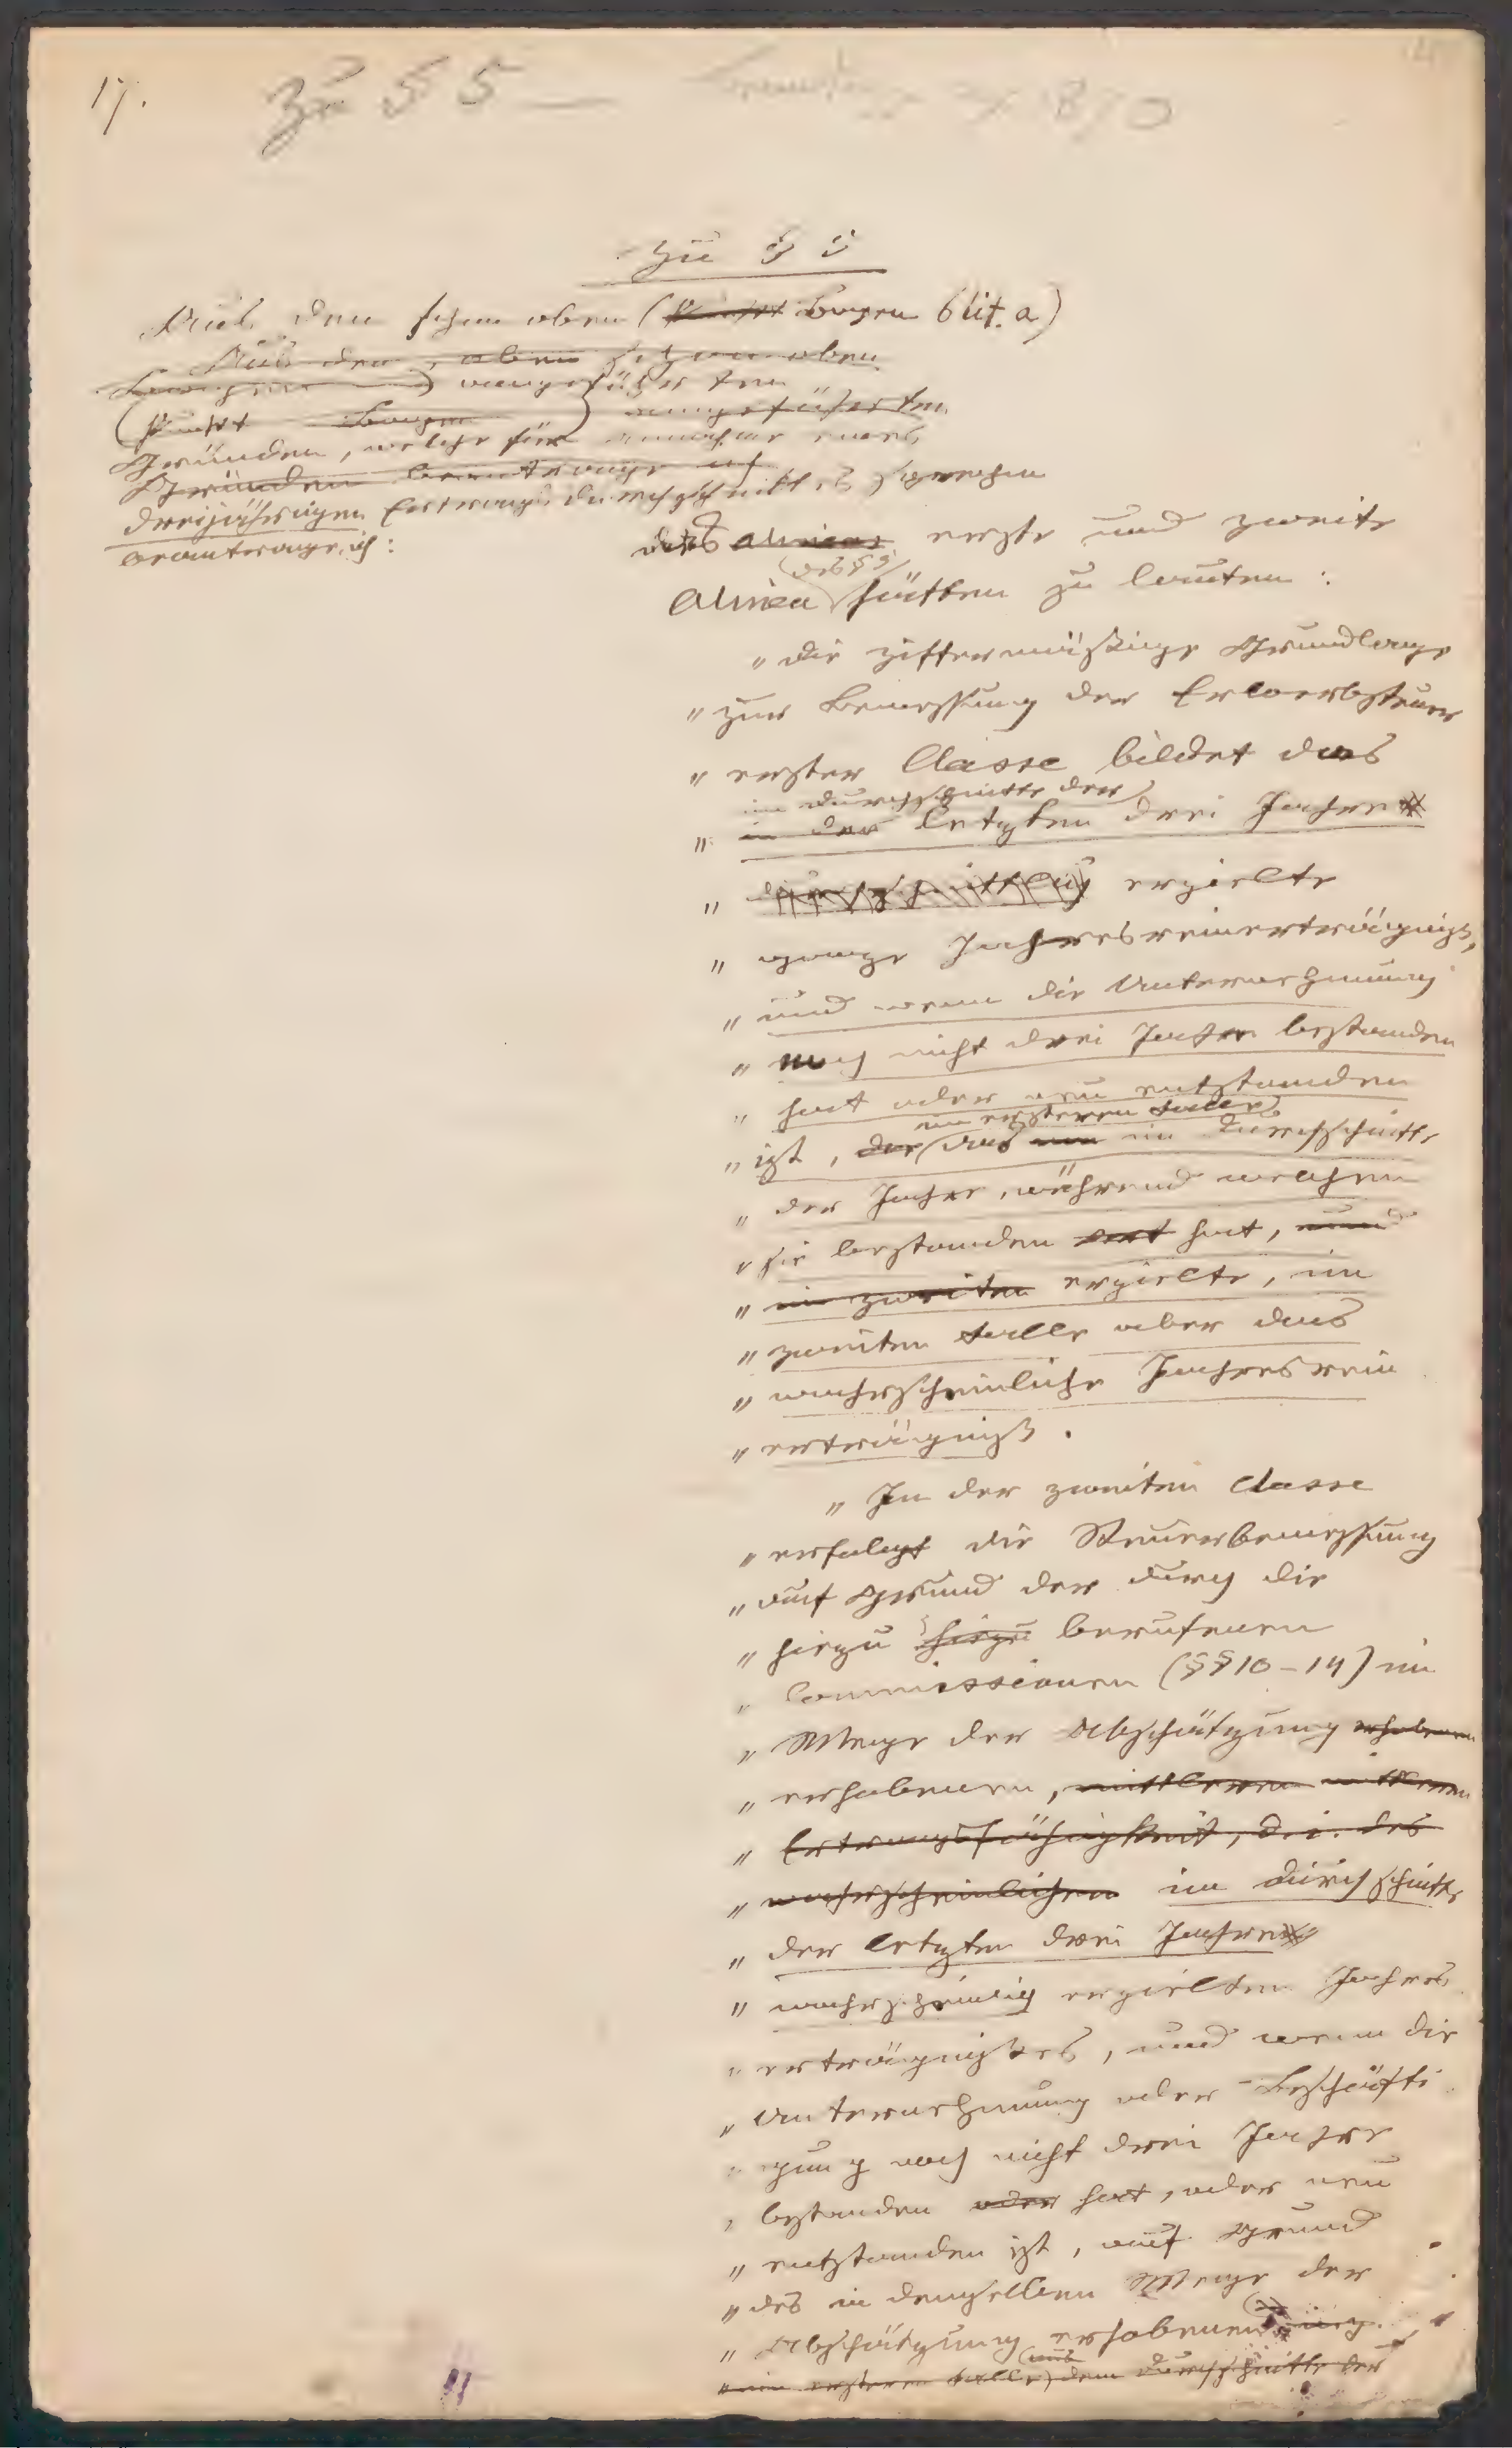 17.
Zu § 5
1870
Zu § 5
Aus den schon oben (Punkt Bogen 6 lit. a)
Aus den, oben schon oben
angeführten
(Punkt Bogen) angeführten
Gründen, welche für Annahme eines
Gründen beantrage ich
dreijährigen Ertrags durchschnittes sprechen
beantrage ich:
das alinea erste und zweite
(des § 5)
Alinea hätten zu lauten:
"Die ziffermäßige Grundlage
"zur Bemessung der Erwerbsteuer
"erster Classe bildet das
im Durchschnitte der
"in der letzten drei Jahre
"durchschnittlich erzielte
"ganze Jahresreinerträgniß,
"und wenn die Unternehmung
"noch nicht drei Jahre bestanden
"hat oder neu entstanden
im ersteren Falle
"ist, der das im Durchschnitte
"der Jahre, während welchen
"sie bestanden hat, und
"im zweiten erzielte, im
"zweiten Falle aber das
"wahrscheinliche Jahresrein
"erträgniß.
"In der zweiten Classe
"erfolgt die Steuerbemessung
"auf Grund der durch die
"hiezu hiezu berufenen
"Commissionen (§§ 10-14) im
"Wege der Abschätzung erhobenen
"erhobenen, mittleren mittleren
"Ertragsfähigkeit, d.i. des
"wahrscheinlichen im Durchschnitte
"der letzten drei Jahre
"wahrscheinlich erzielten Jahres
"erträgnißes, und wenn die
"Unternehmung oder Beschäfti
"gung noch nicht drei Jahre
"bestanden oder hat, oder neu
"entstanden ist, auf Grund
"des in demselben Wege der
"Abschätzung erhobenen
"im ersteren Falle) dem Durchschnitte der